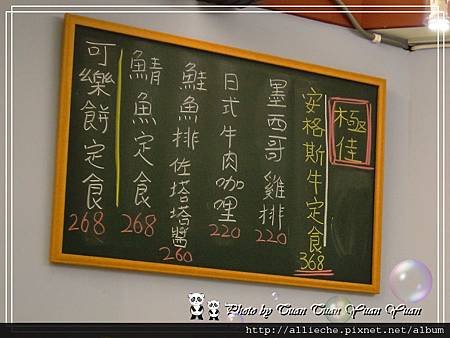 極佳
安格斯牛定食 368
墨西哥雞排 220
日式牛肉咖哩 220
鮭魚排佐塔塔醬 260
鯖魚定食 268
可樂餅定食 268
Photo by Tuan Tuan Yuan Yuan
http://allieche.pixnet.net/album